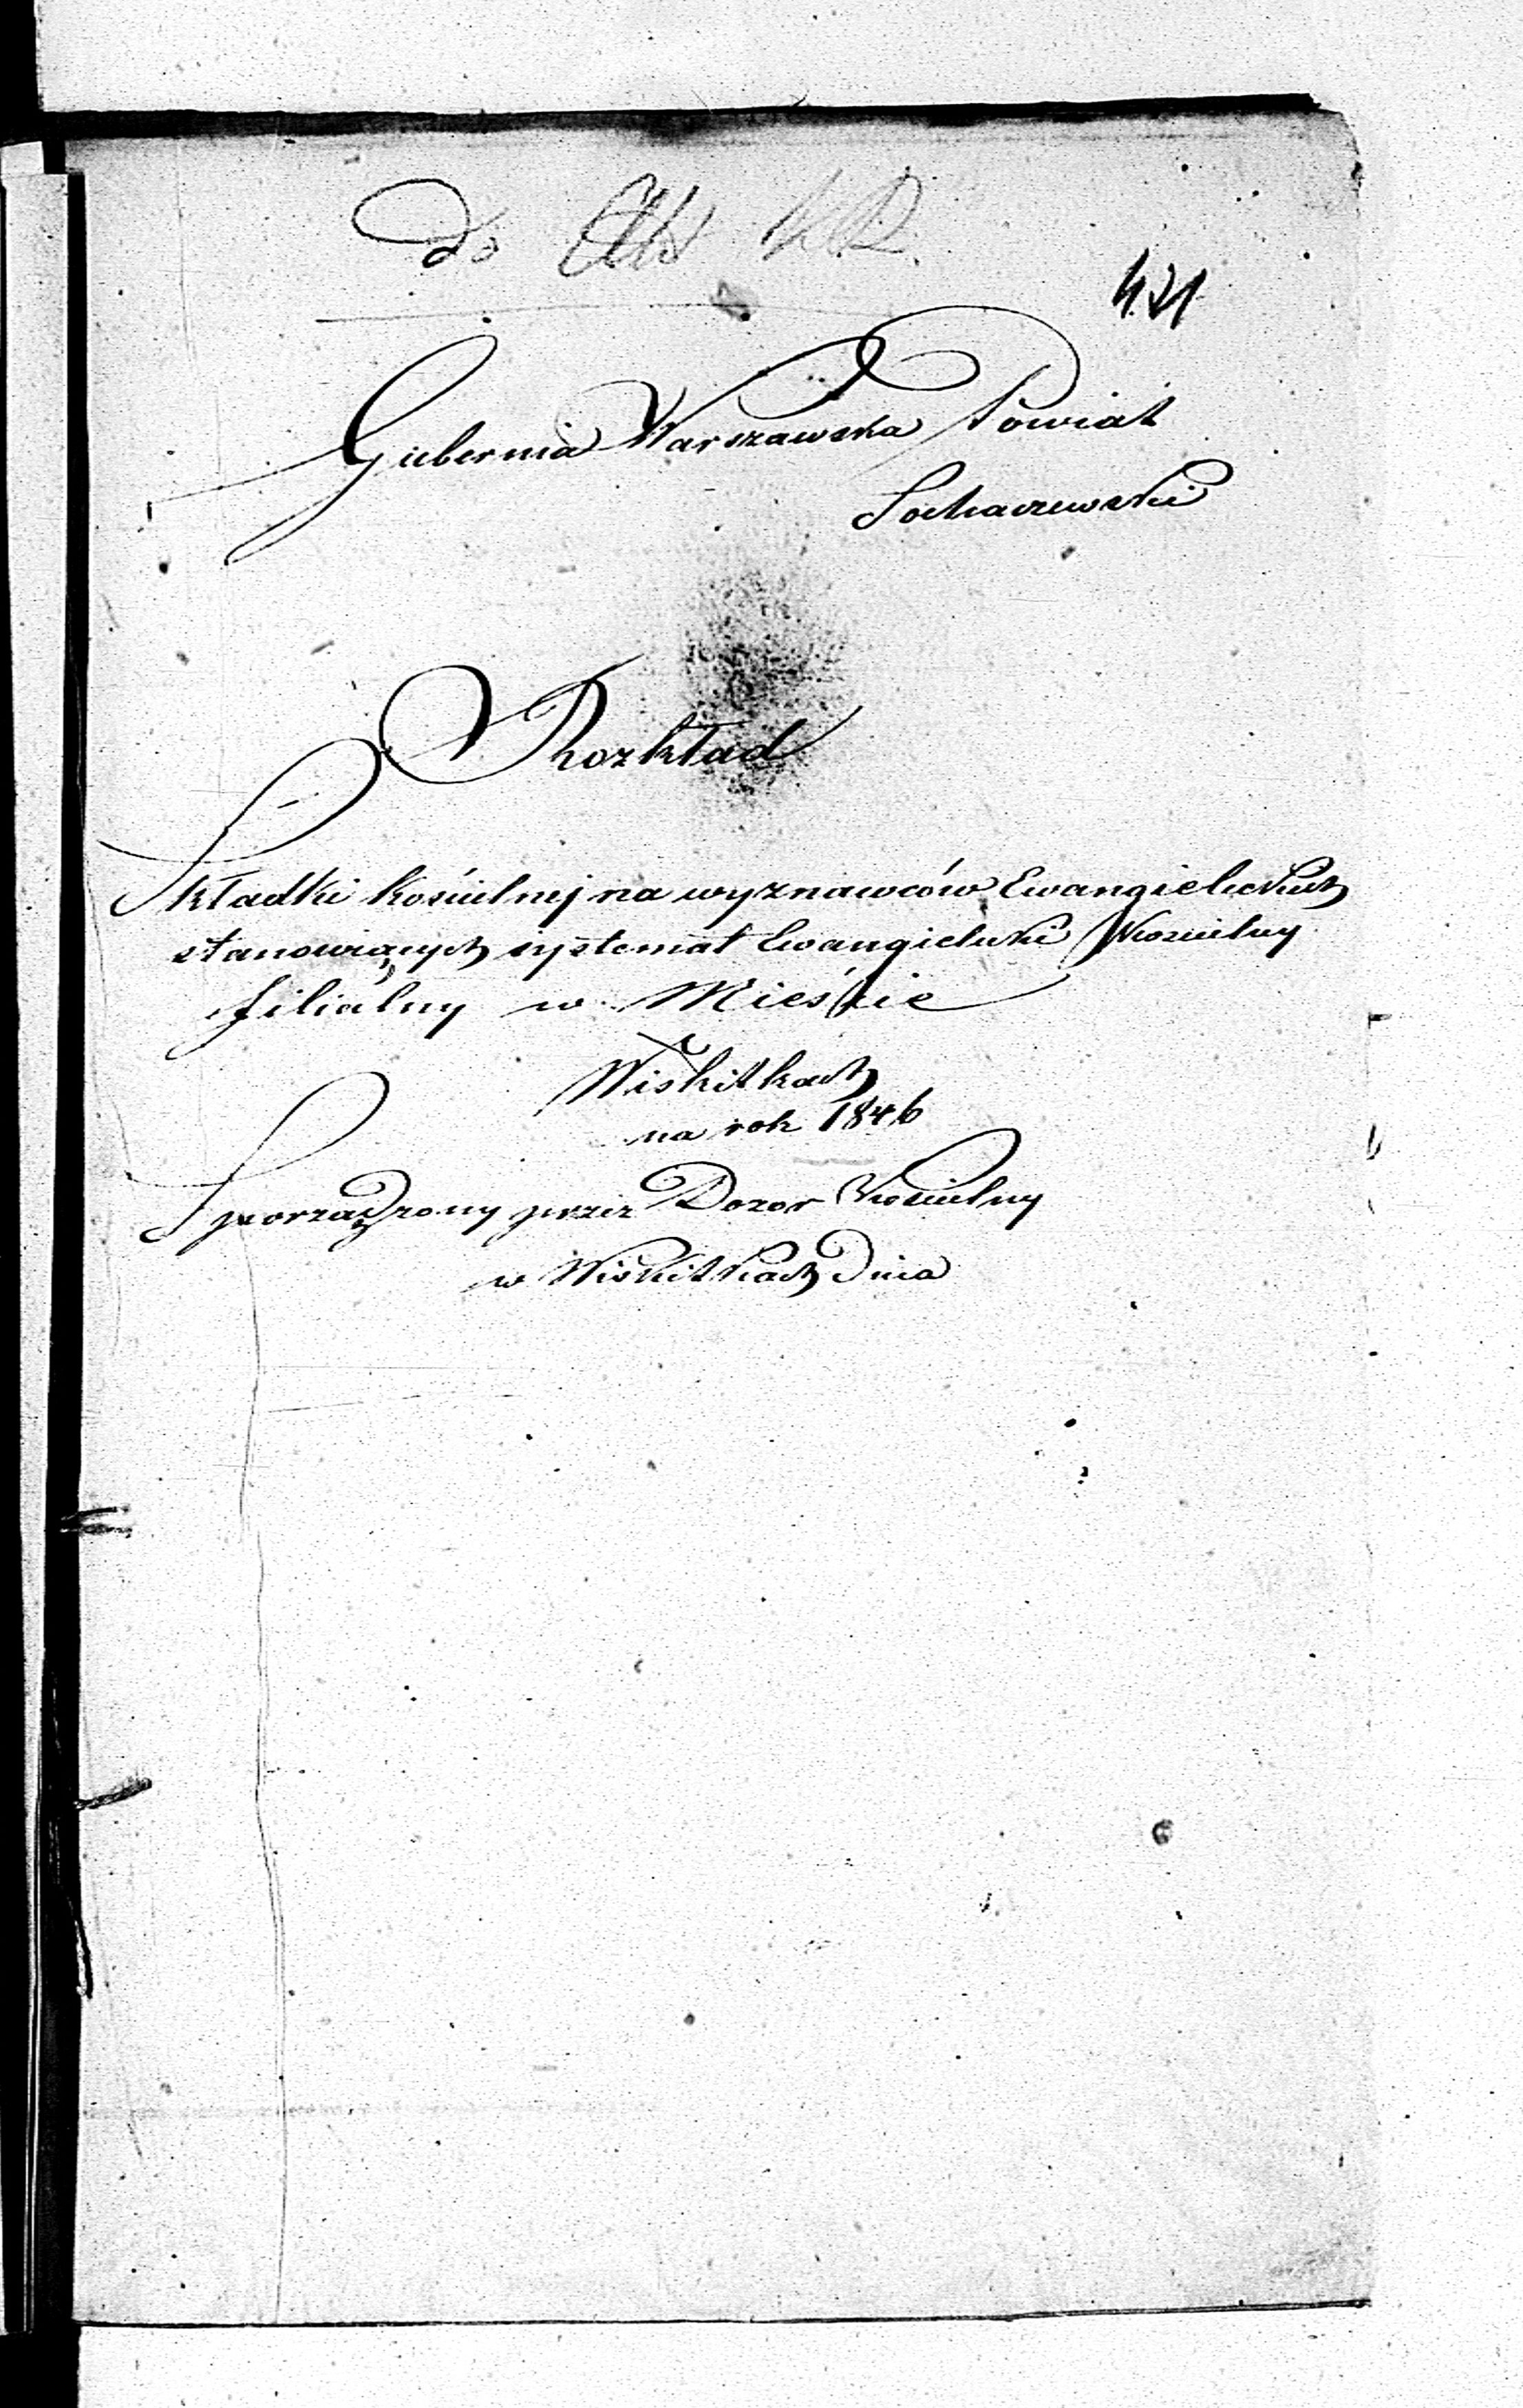 do
421
Gubernia Warszawska Powiat
Sochaczewski
Rozkład
Składki kościelnej na wyznawców Ewangielickich
stanowiących systemat Ewangielicki Kościelny
filialny w Mieście
Wiskitkach
na rok 1846
Sporządzony przez Dozor Kościelny
w Wiskitkach Dnia